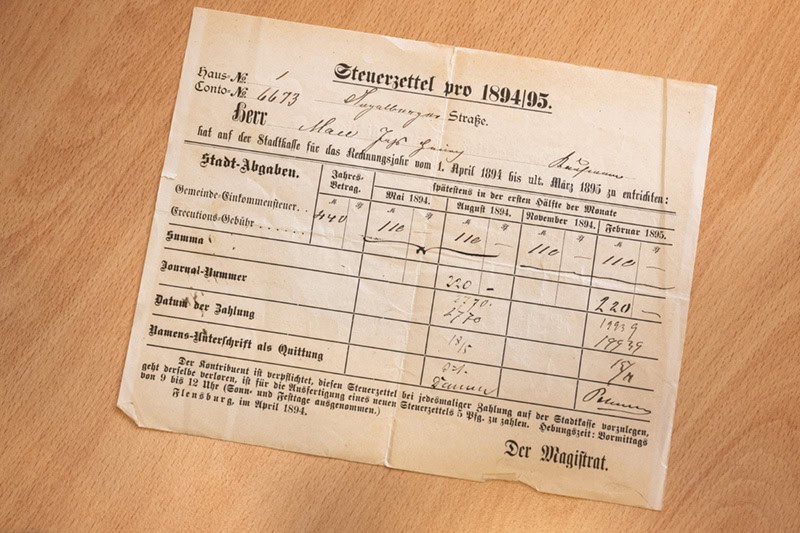 Steuerzettel pro 1894/95.
Haus-№ 1
Conto-№ 6673 Straße.
Herr
hat auf der Stadtkasse für das Rechnungsjahr vom 1. April 1894 bis ult. März 1895 zu entrichten:
Stadt-Abgaben. Jahres-Betrag. spätestens in der ersten Hälfte der Monate
Mai 1894. August 1894. November 1894. Februar 1895.
Gemeinde-Einkommensteuer 440 110 — 110 — 110 — 110 —
Executions-Gebühr
Summa 220 - 220 —
Journal-Nummer 2770
Datum der Zahlung
Namens-Unterschrift als Quittung
Der Kontribuent ist verpflichtet, diesen Steuerzettel bei jedesmaliger Zahlung auf der Stadtkasse vorzulegen,
geht derselbe verloren, ist für die Ausfertigung eines neuen Steuerzettels 5 Pfg. zu zahlen. Hebungszeit: Vormittags
von 9 bis 12 Uhr (Sonn- und Festtage ausgenommen.)
Flensburg, im April 1894.
Der Magistrat.